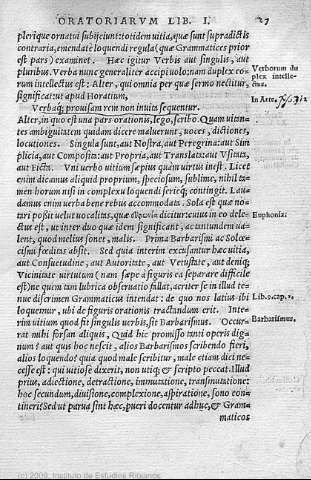 ORATORIARVM LIB. I.
27
plerique ornatui subijciunt: totidem uitia, quæ sunt supradictis
contraria, emendate loquendi regula (quæ Grammatices prior
est pars) examinet. Hæc igitur Verbis aut singulis, aut
pluribus. Verba nunc generaliter accipi uolo: nam duplex eo-
rum intellectus est: Alter, qui omnia per quæ sermo nectitur,
significat: ut apud Horatium,
Verbaq; prouisam rem non inuita sequentur.
Alter, in quo est una pars orationis, lego, scribo. Quam uitan-
tes ambiguitatem quidam dicere maluerunt, uoces, dictiones,
locutiones. Singula sunt, aut Nostra, aut Peregrina: aut Sim
plicia, aut Composita: aut Propria, aut Translata: aut Vsitata,
aut Ficta. Vni uerbo uitium sæpius quàm uirtus inest. Licet
enim dicamus aliquid proprium, speciosum, sublime, nihil ta-
men horum nisi in complexu loquendi serieq; contingit. Lau-
damus enim uerba bene rebus accommodata. Sola est quæ no-
tari possit uelut uocalitas, quæ dicitur: cuius in eo dele-
ctus est, ut inter duo quæ idem significant, ac tantundem ua-
lent, quod melius sonet, malis. Prima Barbarismi ac Solœ-
cismi fœditas absit. Sed quia interim excusantur hæc uitia,
aut Consuetudine, aut Autoritate, aut Vetustate, aut deniq;
Vicinitate uirtutum (nam sæpe à figuris ea separare difficile
est) ne quem tam lubrica obseruatio fallat, acriter se in illud te-
nue discrimen Grammaticus intendat: de quo nos latius ibi
loquemur, ubi de figuris orationis tractandum erit. Inte-
rim uitium quod fit singulis uerbis, sit Barbarismus. Occur-
rat mihi forsan aliquis, Quid hic promisso tanti operis dig-
num? aut quis hoc nescit, alios Barbarismos scribendo fieri,
alios loquendo? quia quod male scribitur, male etiam dici ne-
cesse est: qui uitiose dixerit, non utiq; & scripto peccat. Illud
prius, adiectione, detractione, immutatione, transmutatione:
hoc secundum, diuisione, complexione, aspiratione, sono con-
tineri? Sed ut parua sint hæc, pueri docentur adhuc, & Gram-
maticos
Verborum du
plex intelle-
In Arte.
Euphonia:
Lib.9.cap.1.
Barbarismus.
(c) 2009, Instituto de Estudios Riojanos